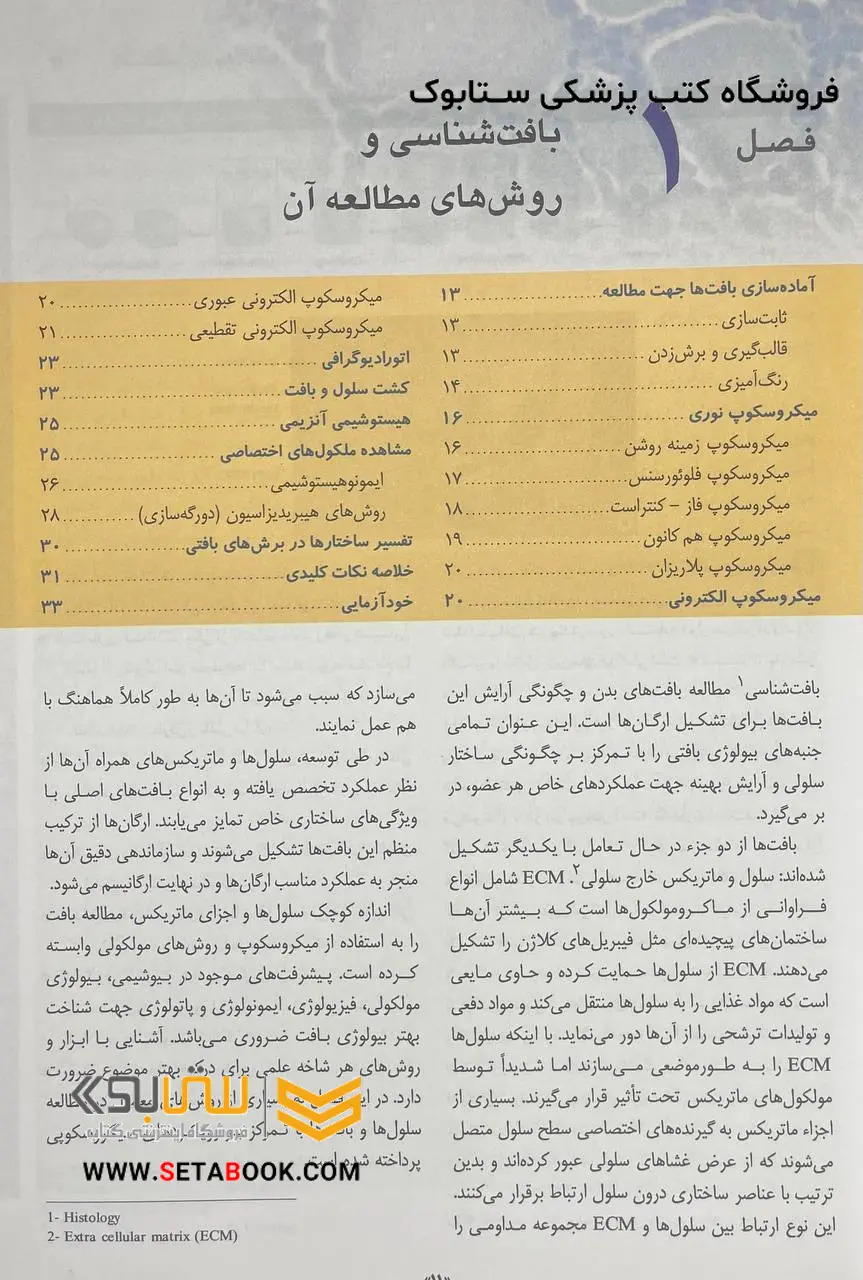 فروشگاه کتب پزشکی ستابوک
فصل ۱
بافت‌شناسی و
روش‌های مطالعه آن
آماده‌سازی بافت‌ها جهت مطالعه ۱۳
ثابت‌سازی ۱۳
قالب‌گیری و برش‌زدن ۱۳
رنگ‌آمیزی ۱۴
میکروسکوپ نوری ۱۶
میکروسکوپ زمینه روشن ۱۶
میکروسکوپ فلوئورسنس ۱۷
میکروسکوپ فاز – کنتراست ۱۸
میکروسکوپ هم کانون ۱۹
میکروسکوپ پلاریزان ۲۰
میکروسکوپ الکترونی ۲۰
میکروسکوپ الکترونی عبوری ۲۰
میکروسکوپ الکترونی تقطیعی ۲۱
اتورادیوگرافی ۲۳
کشت سلول و بافت ۲۳
هیستوشیمی آنزیمی ۲۵
مشاهده ملکول‌های اختصاصی ۲۵
ایمونوهیستوشیمی ۲۶
روش‌های هیبریدیزاسیون (دورگه‌سازی) ۲۸
تفسیر ساختارها در برش‌های بافتی ۳۰
خلاصه نکات کلیدی ۳۱
خودآزمایی ۳۳
بافت‌شناسی۱ مطالعه بافت‌های بدن و چگونگی آرایش این
بافت‌ها برای تشکیل ارگان‌ها است. این عنوان تمامی
جنبه‌های بیولوژی بافتی را با تمرکز بر چگونگی ساختار
سلولی و آرایش بهینه جهت عملکردهای خاص هر عضو، در
بر می‌گیرد.
بافت‌ها از دو جزء در حال تعامل با یکدیگر تشکیل
شده‌اند: سلول و ماتریکس خارج سلولی۲. ECM شامل انواع
فراوانی از ماکرومولکول‌ها است که بیشتر آن‌ها
ساختمان‌های پیچیده‌ای مثل فیبریل‌های کلاژن را تشکیل
می‌دهند. ECM از سلول‌ها حمایت کرده و حاوی مایعی
است که مواد غذایی را به سلول‌ها منتقل می‌کند و مواد دفعی
و تولیدات ترشحی را از آن‌ها دور می‌نماید. با اینکه سلول‌ها
ECM را به طورموضعی می‌سازند اما شدیداً توسط
مولکول‌های ماتریکس تحت تأثیر قرار می‌گیرند. بسیاری از
اجزاء ماتریکس به گیرنده‌های اختصاصی سطح سلول متصل
می‌شوند که از عرض غشاهای سلولی عبور کرده‌اند و بدین
ترتیب با عناصر ساختاری درون سلول ارتباط برقرار می‌کنند.
این نوع ارتباط بین سلول‌ها و ECM مجموعه مداومی را
می‌سازد که سبب می‌شود تا آن‌ها به طور کاملاً هماهنگ با
هم عمل نمایند.
در طی توسعه، سلول‌ها و ماتریکس‌های همراه آن‌ها از
نظر عملکرد تخصص یافته و به انواع بافت‌های اصلی با
ویژگی‌های ساختاری خاص تمایز می‌یابند. ارگان‌ها از ترکیب
منظم این بافت‌ها تشکیل می‌شوند و سازماندهی دقیق آن‌ها
منجر به عملکرد مناسب ارگان‌ها و در نهایت ارگانیسم می‌شود.
اندازه کوچک سلول‌ها و اجزای ماتریکس، مطالعه بافت
را به استفاده از میکروسکوپ و روش‌های مولکولی وابسته
کرده است. پیشرفت‌های موجود در بیوشیمی، بیولوژی
مولکولی، فیزیولوژی، ایمونولوژی و پاتولوژی جهت شناخت
بهتر بیولوژی بافت ضروری می‌باشد. آشنایی با ابزار و
روش‌های هر شاخه علمی برای درک بهتر موضوع ضرورت
دارد. در این
سلول‌ها و
پرداخته شده است.
ستابوک
فروشگاه اینترنتی کتاب
WWW.SETABOOK.COM
1- Histology
2- Extra cellular matrix (ECM)
«۱۱»